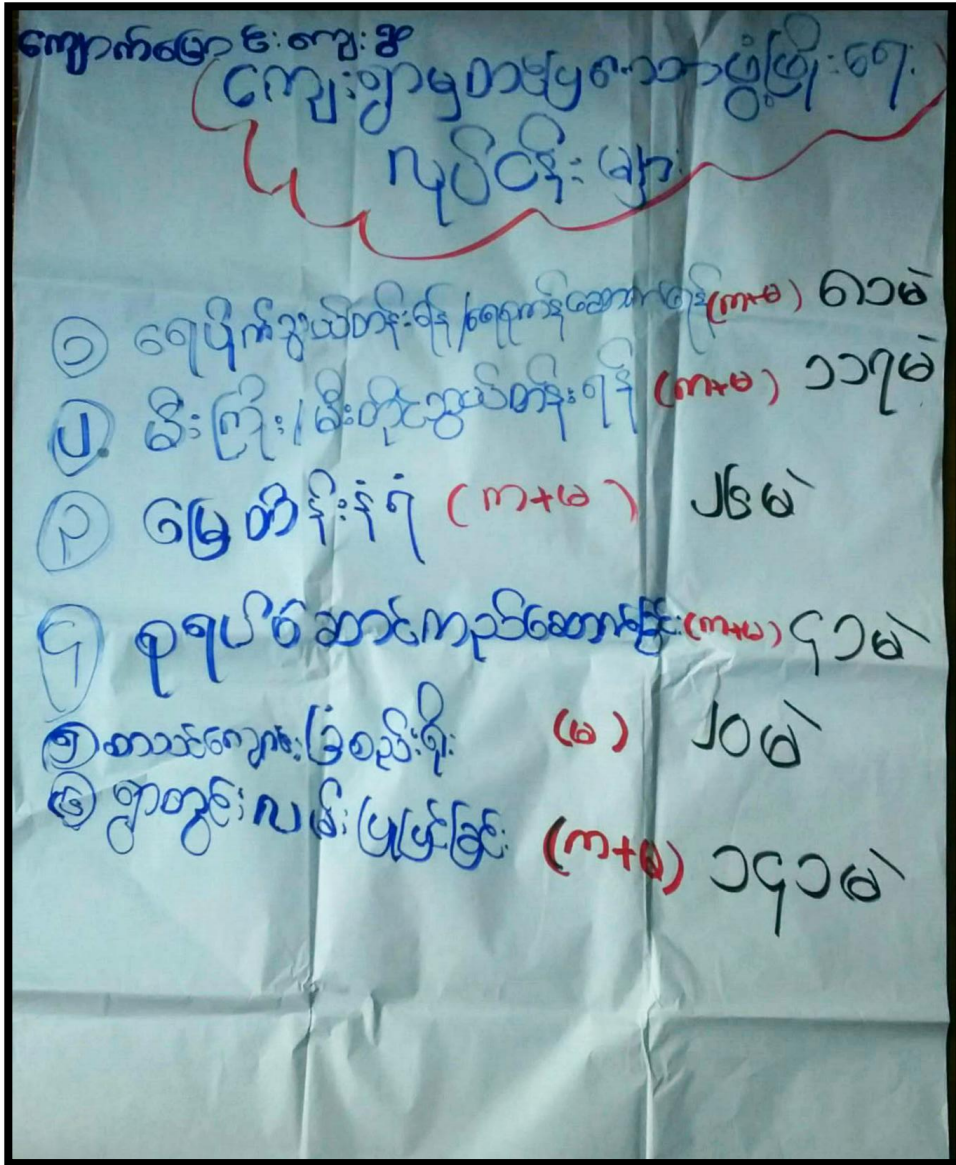 ကျောက်မြောင်းကျေးရွာ
ကျေးရွာမှတစ်ဖွံ့ဖြိုးရေး
လုပ်ငန်းများ
၁ ရေပိုက်သွယ်တန်းရန်/ရေရကန်ဆောက်ရန် (က+မ) ၆၁မဲ
၂. မီးကြိုး/မီးတိုင်သွယ်တန်းရန် (က+မ) ၁၁၇မဲ
၃ မြေထိန်းနံရံ (က+မ) ၂၆မဲ
၄ စုရပ်အဆောင်ကညပ်ဆောက်ခြင်း (က+မ) ၄၁မဲ
၅ စာသင်ကျောင်းခြံစည်းရိုး (မ) ၂၀မဲ
၆ ရွာတွင်းလမ်းပြုပြင်ခြင်း (က+မ) ၁၄၁မဲ